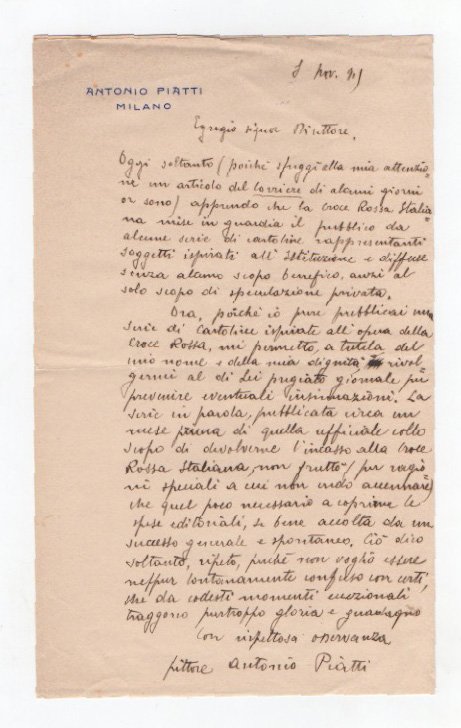 ANTONIO PIATTI
MILANO
Nov.
Egregio signor Direttore,
Oggi soltanto (poiché sfuggì alla mia attenzio=
ne un articolo del Corriere di alcuni giorni
or sono) apprendo che la Croce Rossa Italia=
na mise in guardia il pubblico da
alcune serie di cartoline rappresentanti
soggetti ispirati all'Istituzione e diffuse
senza alcuno scopo benefico, anzi al
solo scopo di speculazione privata.
Ora, poiché io pure pubblicai una
serie di cartoline ispirate all'opera della
Croce Rossa, mi permetto, a tutela del
mio nome e della mia dignità rivol
germi al di Lei pregiato giornale per
prevenire eventuali insinuazioni. La
serie in parola, pubblicata circa un
mese prima di quella ufficiale collo
scopo di devolverne l'incasso alla Croce
Rossa Italiana, non fruttò (per ragio
ni speciali a cui non credo accennare)
che quel poco necessario a coprirne le
spese editoriali, se bene accolta da un
successo generale e spontaneo. Ciò dico
soltanto, ripeto, perché non voglio essere
neppur lontanamente confuso con certi,
che da codesti momenti eccezionali
traggono purtroppo gloria e guadagno
Con rispettosa osservanza
pittore Antonio Piatti